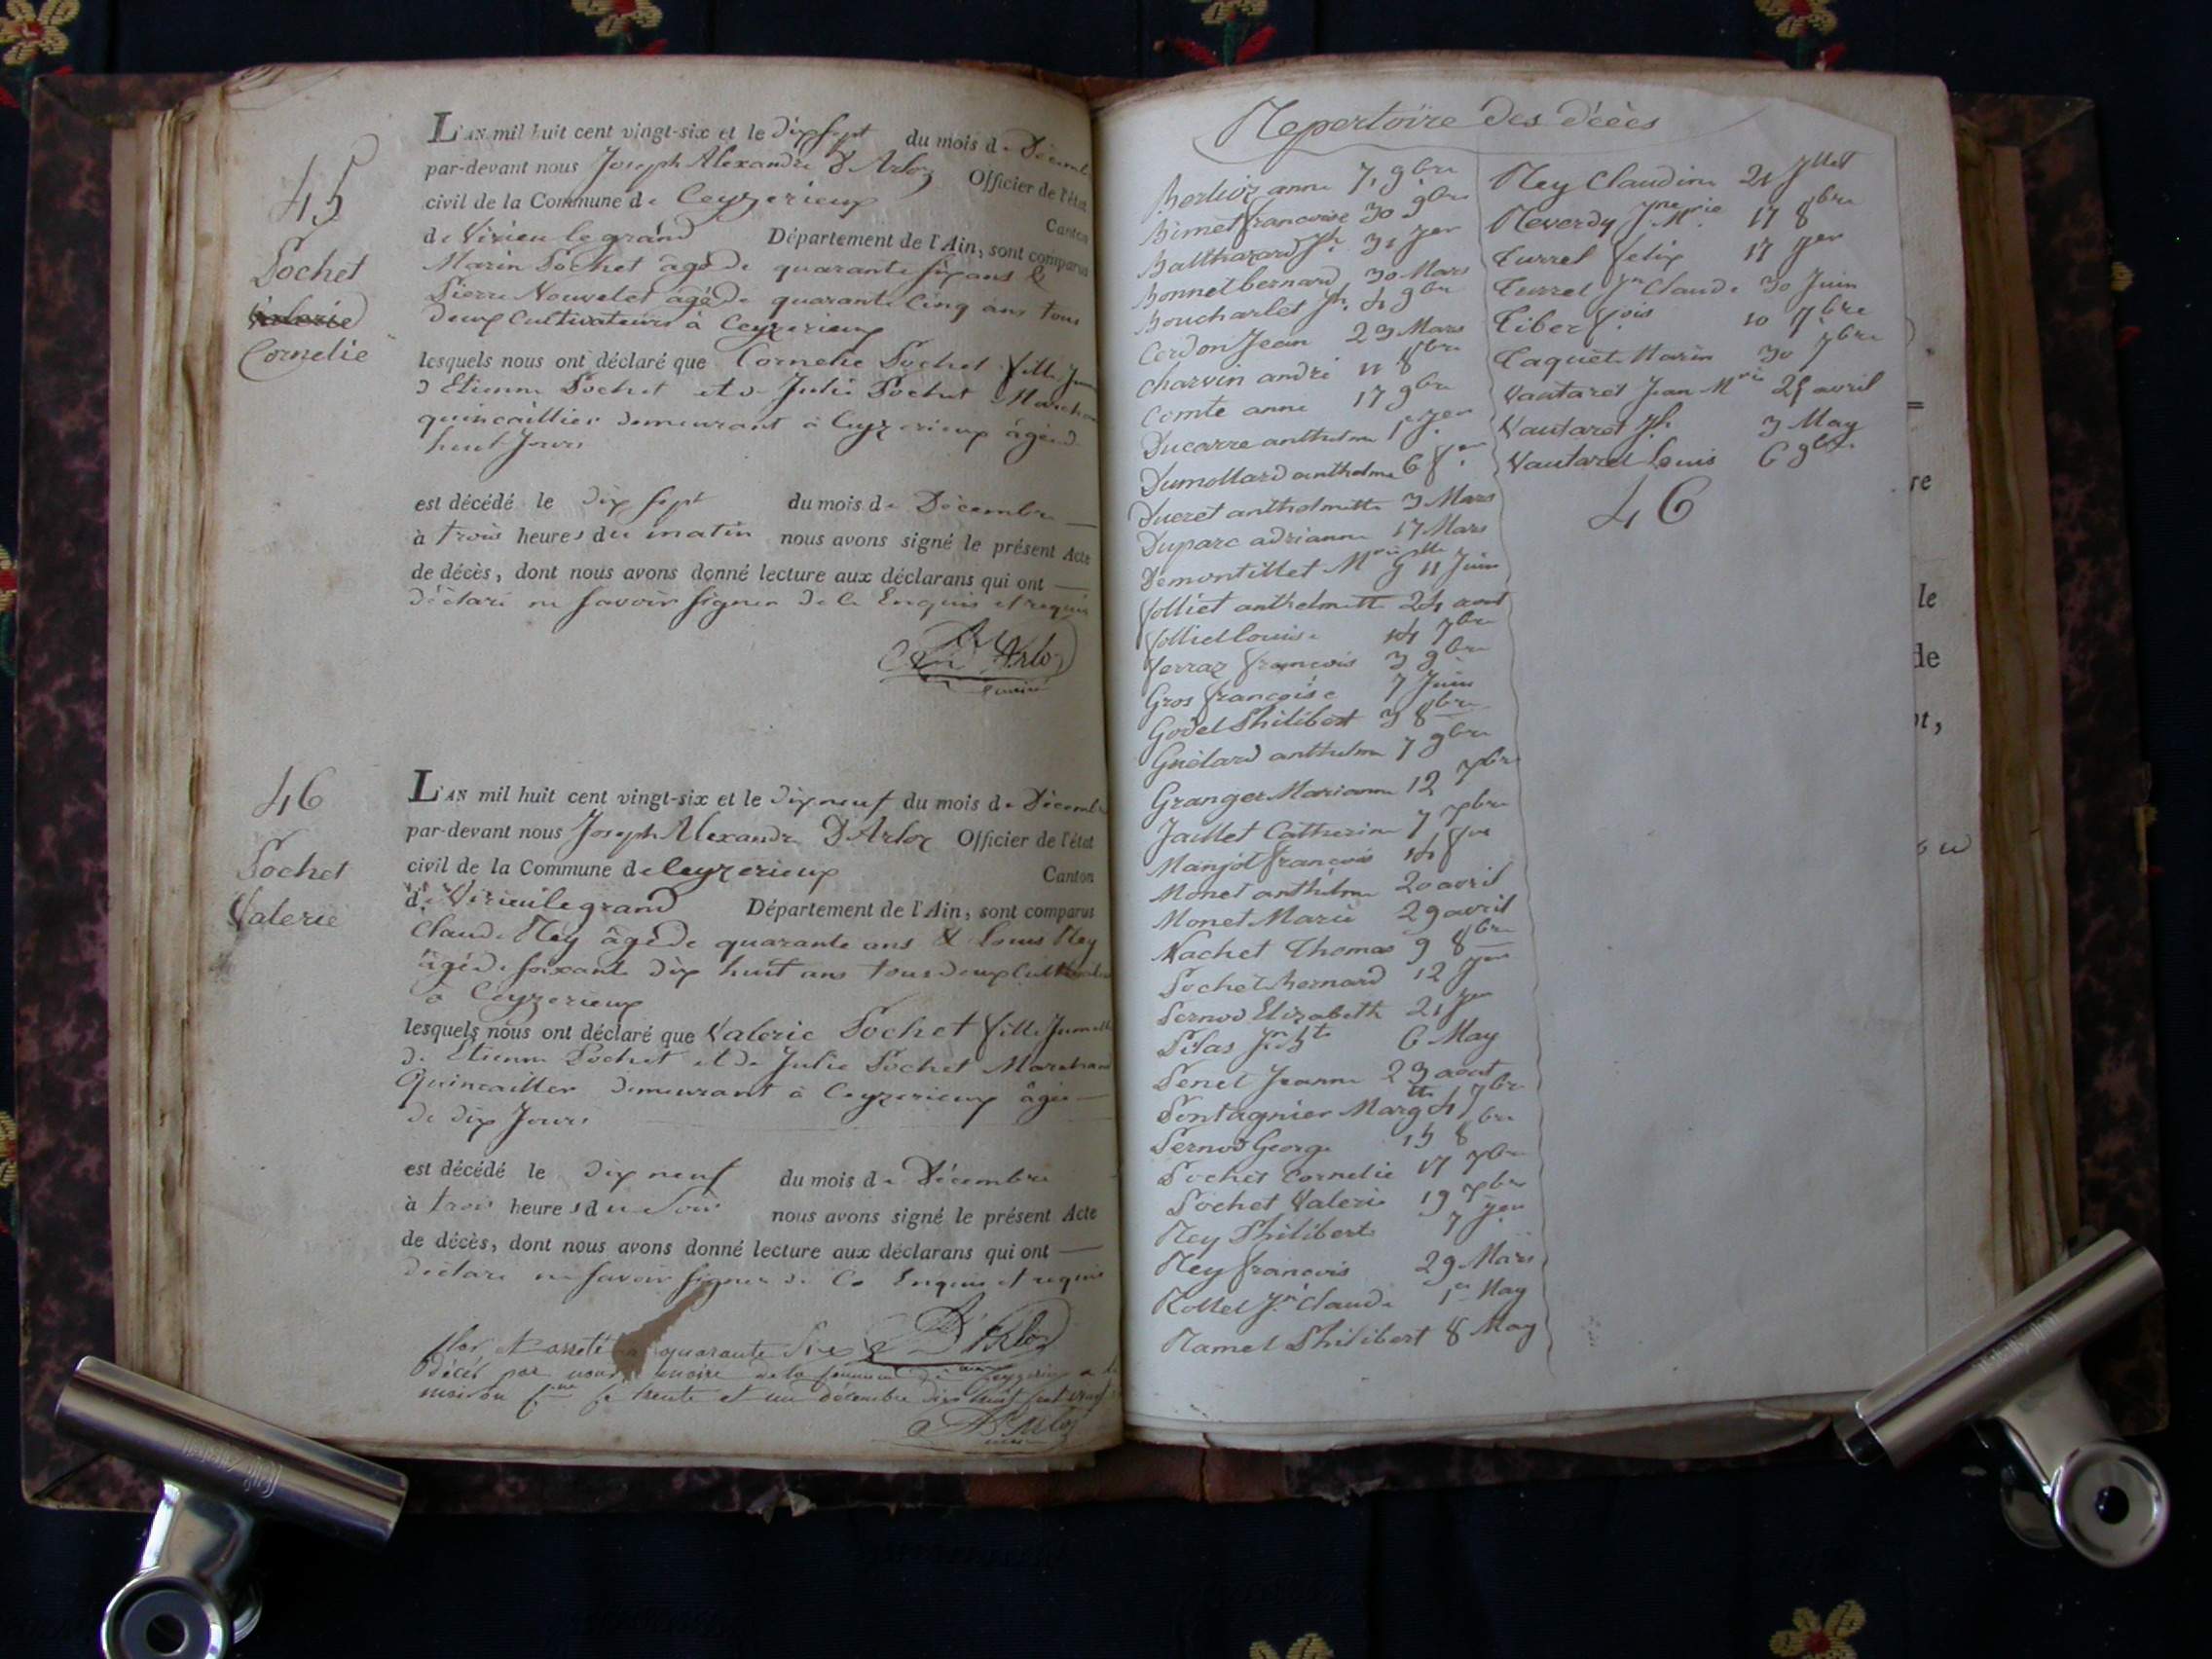 45
Pochet
Valerie
Cornelie
L'AN mil huit cent vingt-six et le dix sept du mois de Décemb
par-devant nous Joseph Alexandre D'Arloz Officier de l'état
civil de la Commune de Ceyzerieux Canton
de Virieu le grand Département de l'Ain, sont comparus
Marin Pochet âgé de quarante six ans &
Pierre Nouvelet agé de quarante cinq ans tous
deux Cultivateurs à Ceyzerieux
lesquels nous ont déclaré que Cornelie Pochet fille Jum
d'Etienne Pochet et de Julie Pochet March
quincaillier demeurant à Ceyzerieux âgée de
huit Jours
est décédé le dix sept du mois de Décembre
à trois heures du matin nous avons signé le présent Acte
de décès, dont nous avons donné lecture aux déclarans qui ont
déclaré ne savoir signer de ce Enquis et requis
D'Arloz
46
Pochet
Valerie
L'AN mil huit cent vingt-six et le dix neuf du mois de Décemb
par-devant nous Joseph Alexandre D'Arloz Officier de l'état
civil de la Commune de Ceyzerieux Canton
de Virieu le grand Département de l'Ain, sont comparus
Claude Rey âgé de quarante ans & Louis Rey
âgé de soixante dix huit ans tous deux Cultivateurs
à Ceyzerieux
lesquels nous ont déclaré que Valerie Pochet fille Jumelle
de Etienne Pochet et de Julie Pochet Marchand
Quincaillier demeurant à Ceyzerieux âgée
de dix Jours
est décédé le dix neuf du mois de Décembre
à trois heures du Soir nous avons signé le présent Acte
de décès, dont nous avons donné lecture aux déclarans qui ont
déclaré ne savoir signer de Ce Enquis et requis
D'Arloz
Clos et arreté quarante Six
décès par nous maire de la commune de Ceyzerieu
maison le trente et un décembre dix huit cent vingt
D'Arloz
Repertoire des décès
Berlioz anne 7, 9bre
Bimet francoise 30 9bre
Balthazard Jh 31 Jer
Bonnet bernard 30 Mars
Boucharlet Jh. 4 9bre
Cerdon Jean 23 Mars
Charvin andré 11 8bre
Comte anne 17 9bre
Ducarre anthelme 1er Jer
Dumollard anthelme 6 fer
Ducret anthelmette 3 Mars
Duparc adrianne 17 Mars
Demontillet Mrie 11 Juin
folliet anthelmette 24 aout
folliet louise 14 7bre
ferraz francois 3 9bre
Gros francoise 7 Juin
Godet Philibert 3 8bre
Guélard anthelme 7 9bre
Granger Marianne 12 xbre
Jaillet Catherine 7 xbre
Manjot francois 14 fer
Monet anthelme 20 avril
Monet Marie 29 avril
Nachet Thomas 9 8bre
Pochet Bernard 12 Jer
Pernod Elizabeth 21 Jer
Pilas Jn Bte 6 May
Penet Jeanne 23 aout
Pontagnier Margtte 4 7bre
Pernod George 15 8bre
Pochet Cornelie 17 xbre
Pochet Valerie 19 xbre
Rey Philiberte 7 Jer
Rey francois 29 Mars
Rollet Jn Claude 1er May
Ramel Philibert 8 May
Rey Claudine 21 Jllet
Reverdy Jne Mrie 17 8bre
Turrel felix 17 Jer
Turrel Jn Claude 30 Juin
Tiber fois 10 7bre
Taquet Marin 30 7bre
Vautaret Jean Mrie 25 avril
Vautaret Jh. 3 May
Vautaret Louis 6 9bre
46
re
le
de